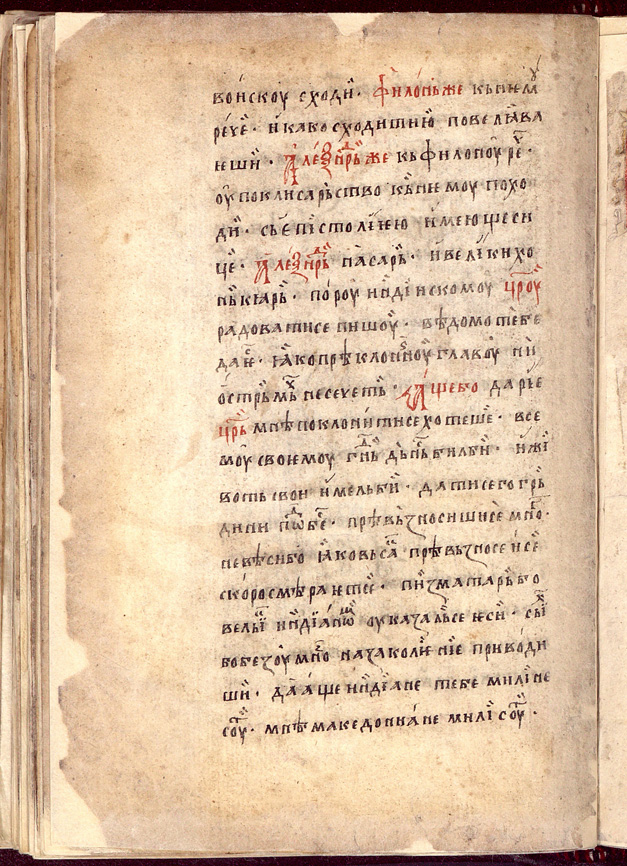 воискоу сходи · филонь же кь нѥмꙋ
рече · и како сходити ю повелѣва
ѥши · Алеѯⷣньрь же кь филоноу реⷱ ·
оу поклисарьство кь нѥмоу похо
ди · сь епистолїею имеюще си
це · Алеѯⷣньрь насарь · и велики хо
нькїарь · пороу индїискомоу цроу
радовати се пишоу · вѣдомо тебе
даѥ · ꙗко прѣклонноу главоу ни
острь мьⷱ не сечеть · Аще бо дарїе
црь мнѣ поклонити се хотеше · все
моу своѥмоу гнь дньⷭ би билъ · и жи
воть свои имель би · да ти се го грь
дини пѡⷣбе · прѣвьзноси ши се мнѡ ·
не вѣси бо ꙗко вьса прѣвьзносеи се
скоро смѣраѥт се · низма тарь бо
велы индїаⷩѡⷨ оуказаль се ѥси · сыⷯ
бо безоумно на заколѥнїе приводи
ши · да аще индїане тебе мили не
соуⷮ · мнѣ македонꙗне мили соуⷮ ·